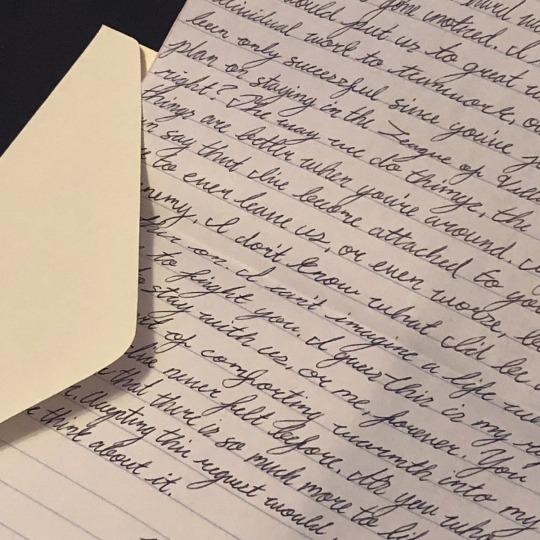 would put us to great u
individual work to teamwork, o
been only successful since you've j
plan on staying in the League of Vill
right? The way we do things, the
things are better when you're around.
n say that I've become attached to yo
to ever leave us, or even worse, be
enemy, I don't know what I'd be
this on. I can't imagine a life wi
to fight you. I guess this is my re
stay with us, or me, forever. You
of comforting warmth into my
never felt before. It's you who
that there is so much more to li
Accepting this request would
think about it.